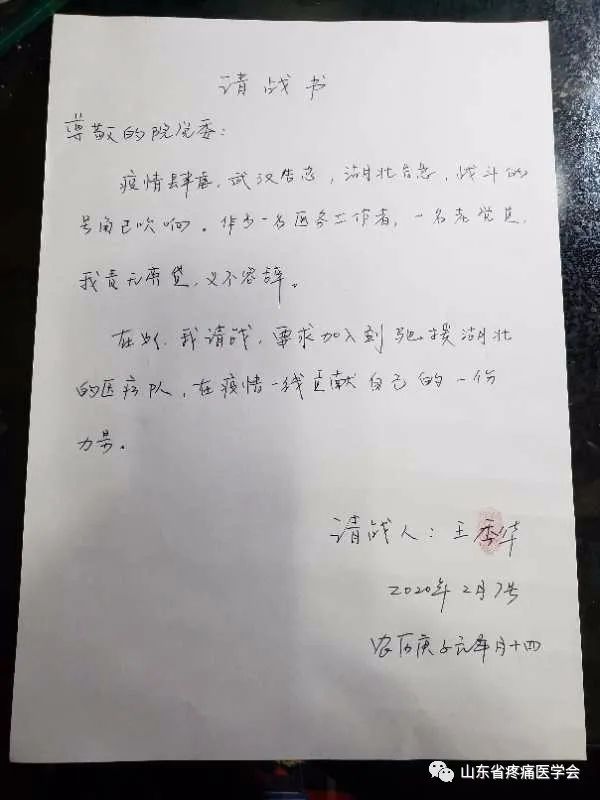 请战书
尊敬的院党委：
疫情肆虐，武汉告急，湖北告急，战斗的
号角已吹响。作为一名医务工作者，一名老党员，
我责无旁贷，义不容辞。
在此，我请战，要求加入到驰援湖北
的医疗队，在疫情一线贡献自己的一份
力量。
请战人：王季华
2020年2月7号
农历庚子元年月十四
山东省疼痛医学会